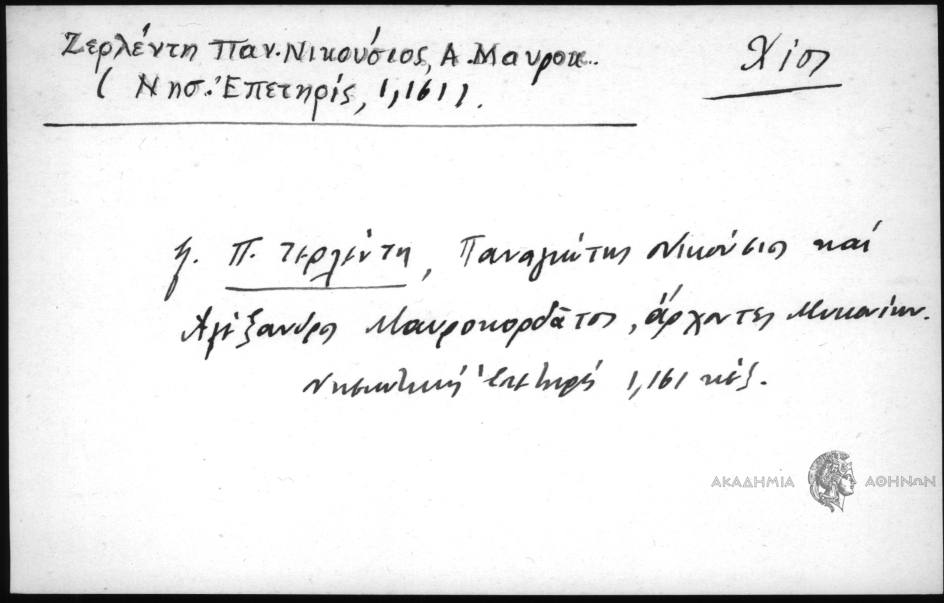 Ζερλέντη Παν. Νικούσιος, Α. Μαυροκ..
Χίος
( Νησ. Ἐπετηρίς, 1, 161 ) .
Π. Ζερλέντη, Παναγιώτης Νικούσιος καί
Ἀλέξανδρος Μαυροκορδᾶτος, ἄρχοντες Μυκονίων.
Νησιωτική Ἐπετηρίς 1, 161 κἑξ.
ΑΚΑΔΗΜΙΑ ΑΘΗΝΩΝ